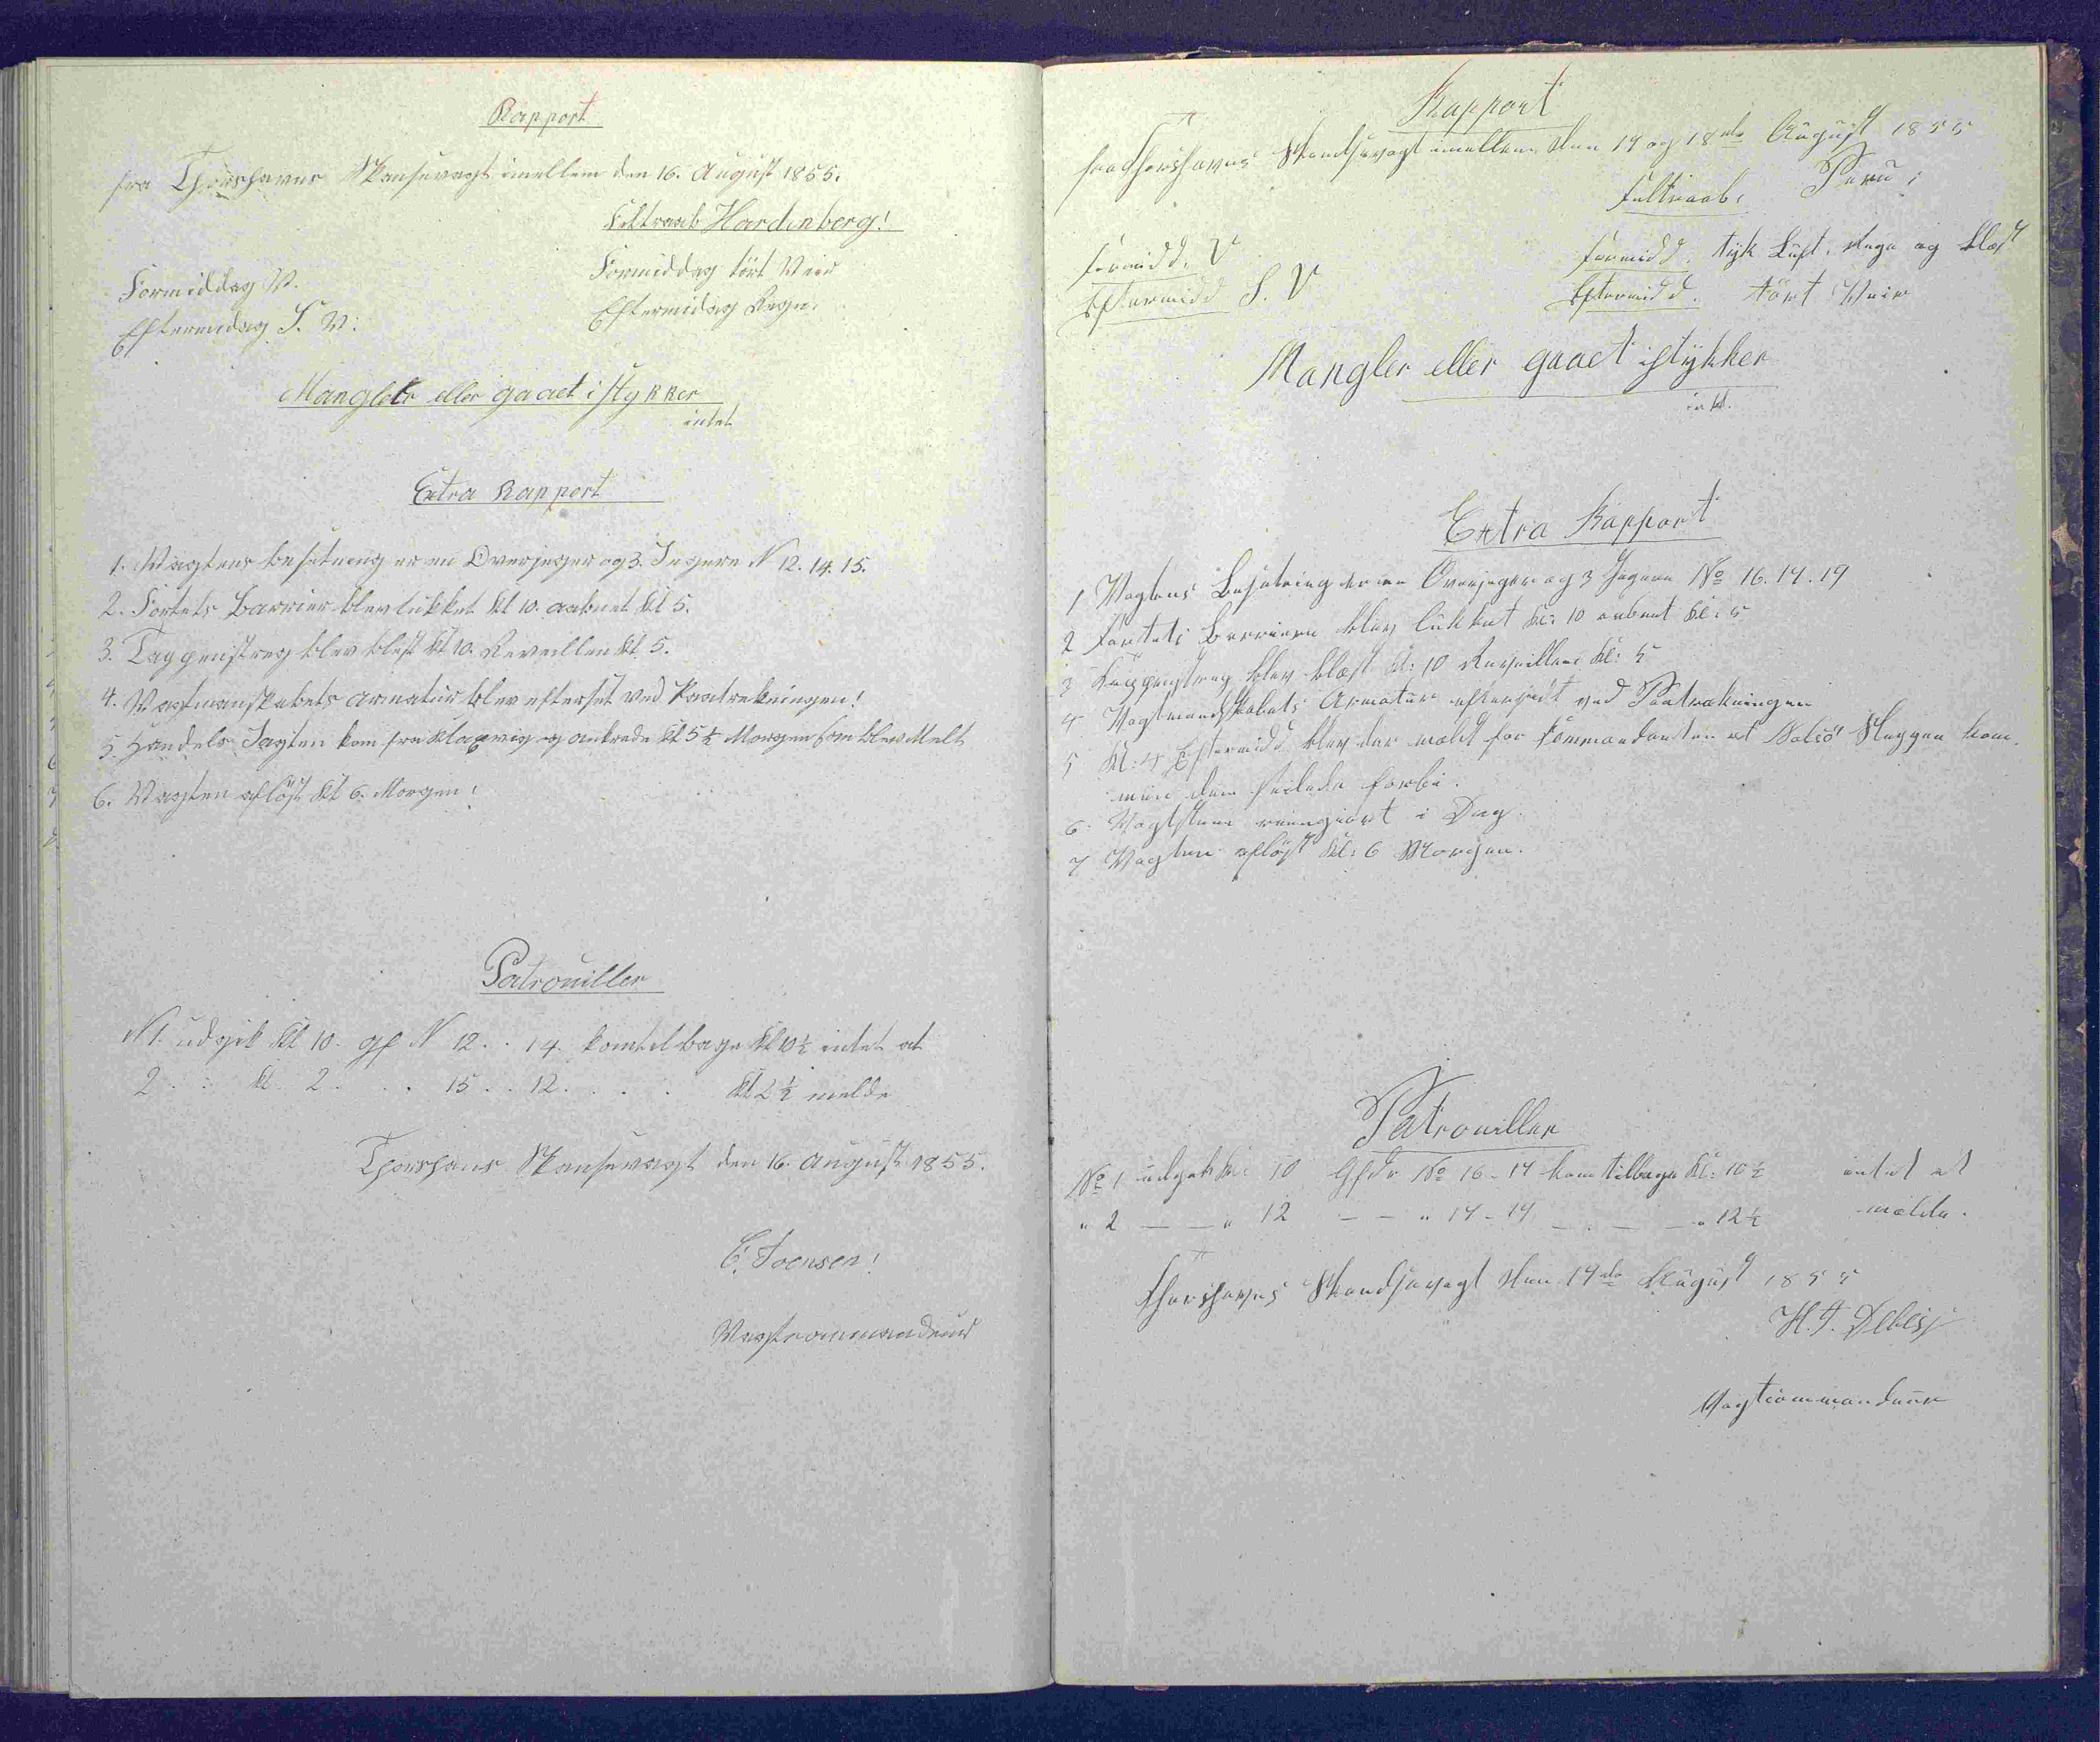 Rapport
fra Thorshavns Skansevagt imellem den 16. August 1855.
Feltraab Hardenberg!
Formiddag V.
Formiddag tört Veir
Eftermidag S. V:
Eftermidag Regn.
Mangler eller gaaet i stykker
intet
Extra Rapport
1. Vagtens besetning er en Overjeger og 3. Jegere N 12. 14. 15.
2. Fortets Barrier blev lukket Kl 10. aabnet Kl 5.
3. Tappenstreg blev blest Kl 10. Reveillen Kl 5.
4. Vagtmanskabets armatur blev efterset ved Paatrekningen!
5. Handels Jagten kom fra Klaxvig og ankrede Kl 5½ Morgen som blev Melt
6. Vagten aflöst Kl 6. Morgen!
Patrouiller
N 1. udgik Kl 10. gf N 12. . 14. kom tilbage Kl 10½ intet at
2 . . Kl 2 . . . 15 . . 12. . . . Kl 2½ melde
Thorshavns Skansevagt den 16. August 1855.
E. Joensen!
Vagtcommandeur
Rapport
fra Thorshavns Skandsevagt imellem den 17 og 18de August 1855
Feltraab: Peru!
Formidd. V
Formidd. tyk Luft, Regn og blæst
Eftermidd S. V
Eftermidd. tört Veir
Mangler eller gaaet istykker
intet.
Extra Rapport
1 Vagtens Besætning er en Overjeger og 3 Jegere No 16. 17. 19
2 Fortets Barriere blev lukket Kl: 10 aabnet Kl: 5
3 Tappenstreg blev blæst Kl: 10 Reveillene Kl: 5
4 Vagtmandskabets Armatur efterseet ved Paatrækningen
5 Kl: 4 Eftermidd blev der meldt for Kommandanten at Nolsö Sluppen kom
men den seilede forbi.
6: Vagtstuen reengiort i Dag.
7 Vagten aflöst Kl: 6 Morgen.
Patrouiller
No 1 udgik Kl: 10 Gfdr No 16 - 17 kom tilbage Kl: 10½ intet at
" 2 — — " 12 — — " 17 - 19 — . — — " 12½ melde.
Thorshavns Skandsevagt den 17de August 1855
H. J. Debess
Vagtcommandeur